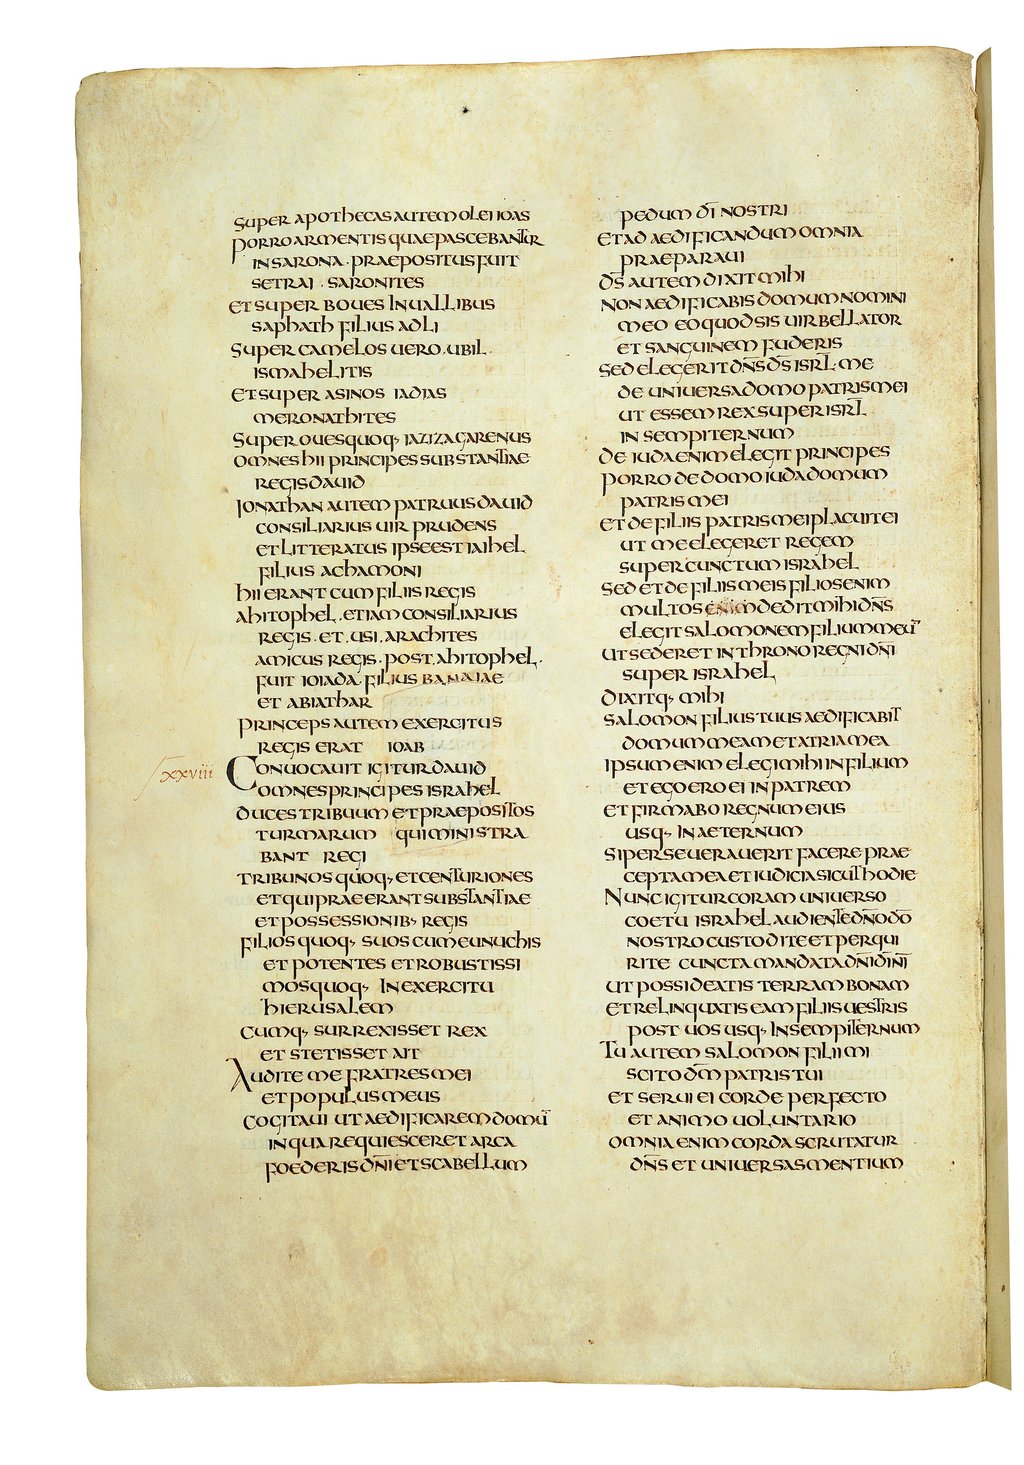 super apothecas autem olei ioas
porro armentis quae pascebantur
in sarona · praepositus fuit
setrai · saronites
et super boues in uallibus
saphath filius adli
super camelos uero · ubil ·
ismahelitis
et super asinos iadias
meronathites
super oues quoq; iaziz agarenus
omnes hii principes substantiae
regis dauid
Ionathan autem patruus dauid
consiliarius uir prudens
et litteratus ipse est iaihel
filius achamoni
hii erant cum filiis regis
ahitophel · etiam consiliarius
regis · et · usi · arachites
amicus regis · post · ahitophel ·
fuit ioiada · filius banaiae
et abiathar
princeps autem exercitus
regis erat ioab
xxviii
Conuocauit igitur dauid
omnes principes israhel
duces tribuum et praepositos
turmarum qui ministra
bant regi
tribunos quoq; et centuriones
et qui praeerant substantiae
et possessionib; regis
filios quoq; suos cum eunuchis
et potentes et robustissi
mos quoq; in exercitu
hierusalem
cumq; surrexisset rex
et stetisset ait
Audite me fratres mei
et populus meus
cogitaui ut aedificarem domū
in qua requiesceret arca
foederis dn̄i et scabellum
pedum dī nostri
et ad aedificandum omnia
praeparaui
ds̄ autem dixit mihi
non aedificabis domum nomini
meo eo quod sis uir bellator
et sanguinem fuderis
sed elegerit dn̄s ds̄ isrl̄ · me
de uniuersa domo patris mei
ut essem rex super isrl̄
in sempiternum
de iuda enim elegit principes
porro de domo iuda domum
patris mei
et de filiis patris mei placuit ei
ut me elegeret regem
super cunctum israhel
sed et de filiis meis filios enim
multos enim dedit mihi dn̄s
elegit salomonem filium meū
ut sederet in throno regni dn̄i
super israhel
dixitq; mihi
salomon filius tuus aedificabit
domum meam et atria mea
ipsum enim elegi mihi in filium
et ego ero ei in patrem
et firmabo regnum eius
usq; in aeternum
si perseuerauerit facere prae
cepta mea et iudicia sicut hodie
Nunc igitur coram uniuerso
coetu israhel audiente dn̄o dō
nostro custodite et perqui
rite cuncta mandata dn̄i dī nī
ut possideatis terram bonam
et relinquatis eam filiis uestris
post uos usq; in sempiternum
Tu autem salomon fili mi
scito dm̄ patris tui
et serui ei corde perfecto
et animo uoluntario
omnia enim corda scrutatur
dn̄s et uniuersas mentium